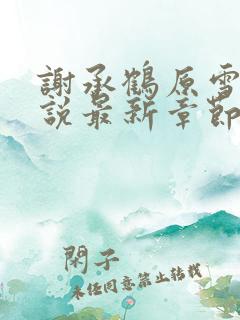 謝承鶴原雪
說最新章節
閑子
未經同意禁止轉載